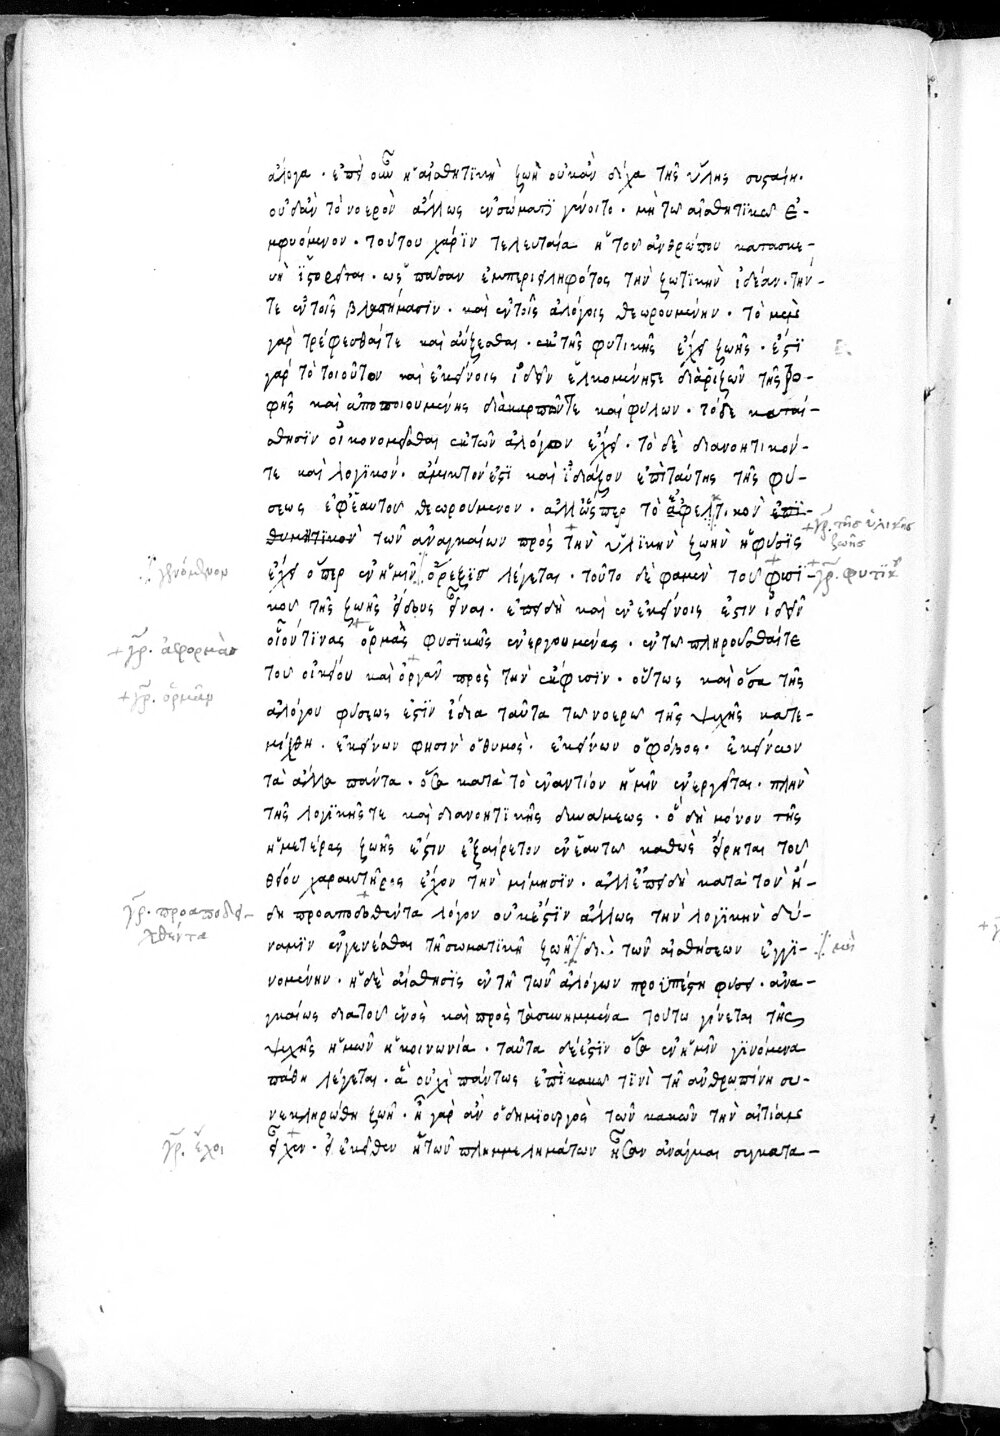 ἄλογα· ἐπεὶ οὖν ἡ αἰσθητικὴ ζωὴ οὐκ ἂν δίχα τῆς ὕλης συσταίη·
οὐδ' ἂν τὸ νοερὸν ἄλλως ἐν σώματι γένοιτο· μὴ τῷ αἰσθητικῷ ἐ-
μφυόμενον· τούτου χάριν τελευταία ἡ τοῦ ἀνθρώπου κατασκε-
υὴ ἱστορεῖται· ὡς πᾶσαν ἐμπεριειληφότος τὴν ζωτικὴν ἰδέαν· τήν-
τε ἐν τοῖς βλαστήμασιν· καὶ ἐν τοῖς ἀλόγοις θεωρουμένην· τὸ μὲν
γὰρ τρέφεσθαί τε καὶ αὔξεσθαι· ἐκ τῆς φυτικῆς ἔχει ζωῆς· ἔστι
γὰρ τὸ τοιοῦτον καὶ ἐν ἐκείνοις ἰδεῖν ἑλκομένης τε διὰ ῥιζῶν τῆς τρο-
φῆς καὶ ἀποποιουμένης διὰ καρπῶν τε καὶ φύλων· τὸ δὲ κατ' αἴ-
σθησιν οἰκονομεῖσθαι ἐκ τῶν ἀλόγων ἔχει· τὸ δὲ διανοητικόν-
τε καὶ λογικὸν· ἄμικτόν ἐστι καὶ ἰδιάζον ἐπὶ ταύτης τῆς φύ-
σεως ἐφ' ἑαυτοῦ θεωρούμενον· ἀλλ' ὥσπερ τὸ ἐφελκτικὸν ἐπι-
θυμητικὸν τῶν ἀναγκαίων πρὸς τὴν ὑλικὴν ζωὴν ἡ φύσις
+γρ. τῆς ὑλικῆς
ζωῆς
γινόμενον
ἔχει ὅπερ ἐν ἡμῖν ὄρεξις λέγεται· τοῦτο δέ φαμεν τοῦ φυσι-
+γρ. φυτικ
κοῦ τῆς ζωῆς εἴδους εἶναι· ἐπειδὴ καὶ ἐν ἐκείνοις ἔστιν ἰδεῖν
οἷόν τινας ὁρμὰς φυσικῶς ἐνεργουμένας· ἐν τῷ πληροῦσθαί τε
+γρ. ἀφορμὰς
τοῦ οἰκείου καὶ ὀργᾶν πρὸς τὴν ἔκφυσιν· οὕτως καὶ ὅσα τῆς
+γρ. ὁρμᾶν
ἀλόγου φύσεως ἐστὶν ἴδια ταῦτα τῷ νοερῷ τῆς ψυχῆς κατε-
μίχθη· ἐκείνων φησὶν ὁ θυμὸς· ἐκείνων ὁ φόβος· ἐκείνων
τὰ ἄλλα πάντα· ὅσα κατὰ τὸ ἐναντίον ἡμῖν ἐνεργεῖται· πλὴν
τῆς λογικῆς τε καὶ διανοητικῆς δυνάμεως· ὃ δὴ μόνον τῆς
ἡμετέρας ζωῆς ἐστιν ἐξαίρετον ἐν ἑαυτῷ καθὼς εἴρηται τοῦ
θείου χαρακτῆρος ἔχον τὴν μίμησιν· ἀλλ' ἐπειδὴ κατὰ τὸν ἤ-
δη προαποδοθέντα λόγον οὐκ ἔστιν ἄλλως τὴν λογικὴν δύ-
γρ. προαποδει-
χθέντα
ναμιν ἐγγενέσθαι τῇ σωματικῇ ζωῇ διὰ τῶν αἰσθήσεων ἐγγι-
μὴ
νομένην· ἡ δὲ αἴσθησις ἐν τῇ τῶν ἀλόγων προϋπέστη φύσει· ἀνα-
γκαίως διὰ τοῦ ἑνὸς καὶ πρὸς τὰ συνημμένα τούτῳ γίνεται τῆς
ψυχῆς ἡμῶν ἡ κοινωνία· ταῦτα δέ ἐστιν ὅσα ἐν ἡμῖν γινόμενα
πάθη λέγεται· ἃ οὐχὶ πάντως ἐπὶ κακῷ τινὶ τῇ ἀνθρωπίνῃ συ-
νεκληρώθη ζωῇ· ἦ γὰρ ἂν ὁ δημιουργὸς τῶν κακῶν τὴν αἰτίαν
εἶχεν· εἰ ἐκεῖθεν τῶν πλημμελημάτων ἦσαν ἀνάγκαι συγκατα-
γρ. ἔχοι